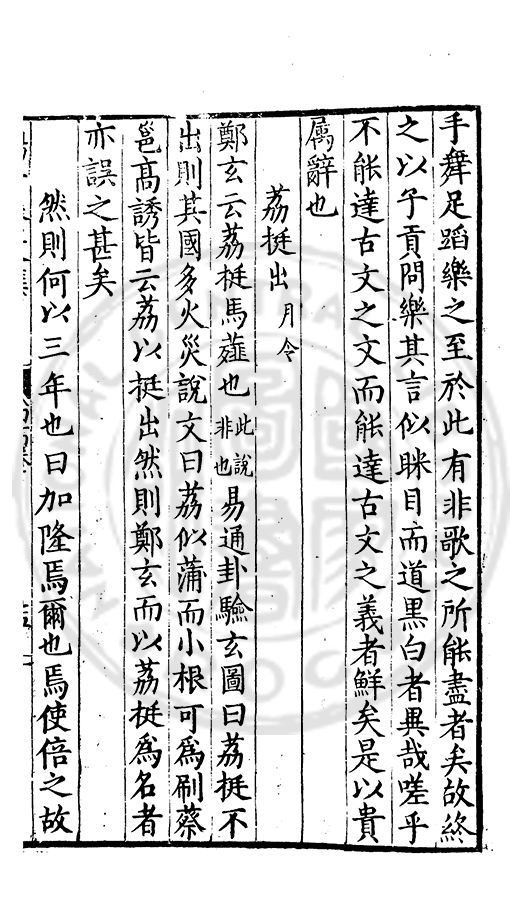 手舞足蹈樂之至於此有非歌之所能盡者矣故終
之以子貢問樂其言似眯目而道黑白者異哉嗟乎
不能達古文之文而能達古文之義者鮮矣是以貴
屬辭也
荔挺出月令
鄭玄云荔挺馬薤也此說非也易通卦驗玄圖曰荔挺不
出則其國多火災說文曰荔似蒲而小根可為刷蔡
邕高誘皆云荔以挺出然則鄭玄而以荔挺為名者
亦誤之甚矣
然則何以三年也曰加隆焉爾也焉使倍之故